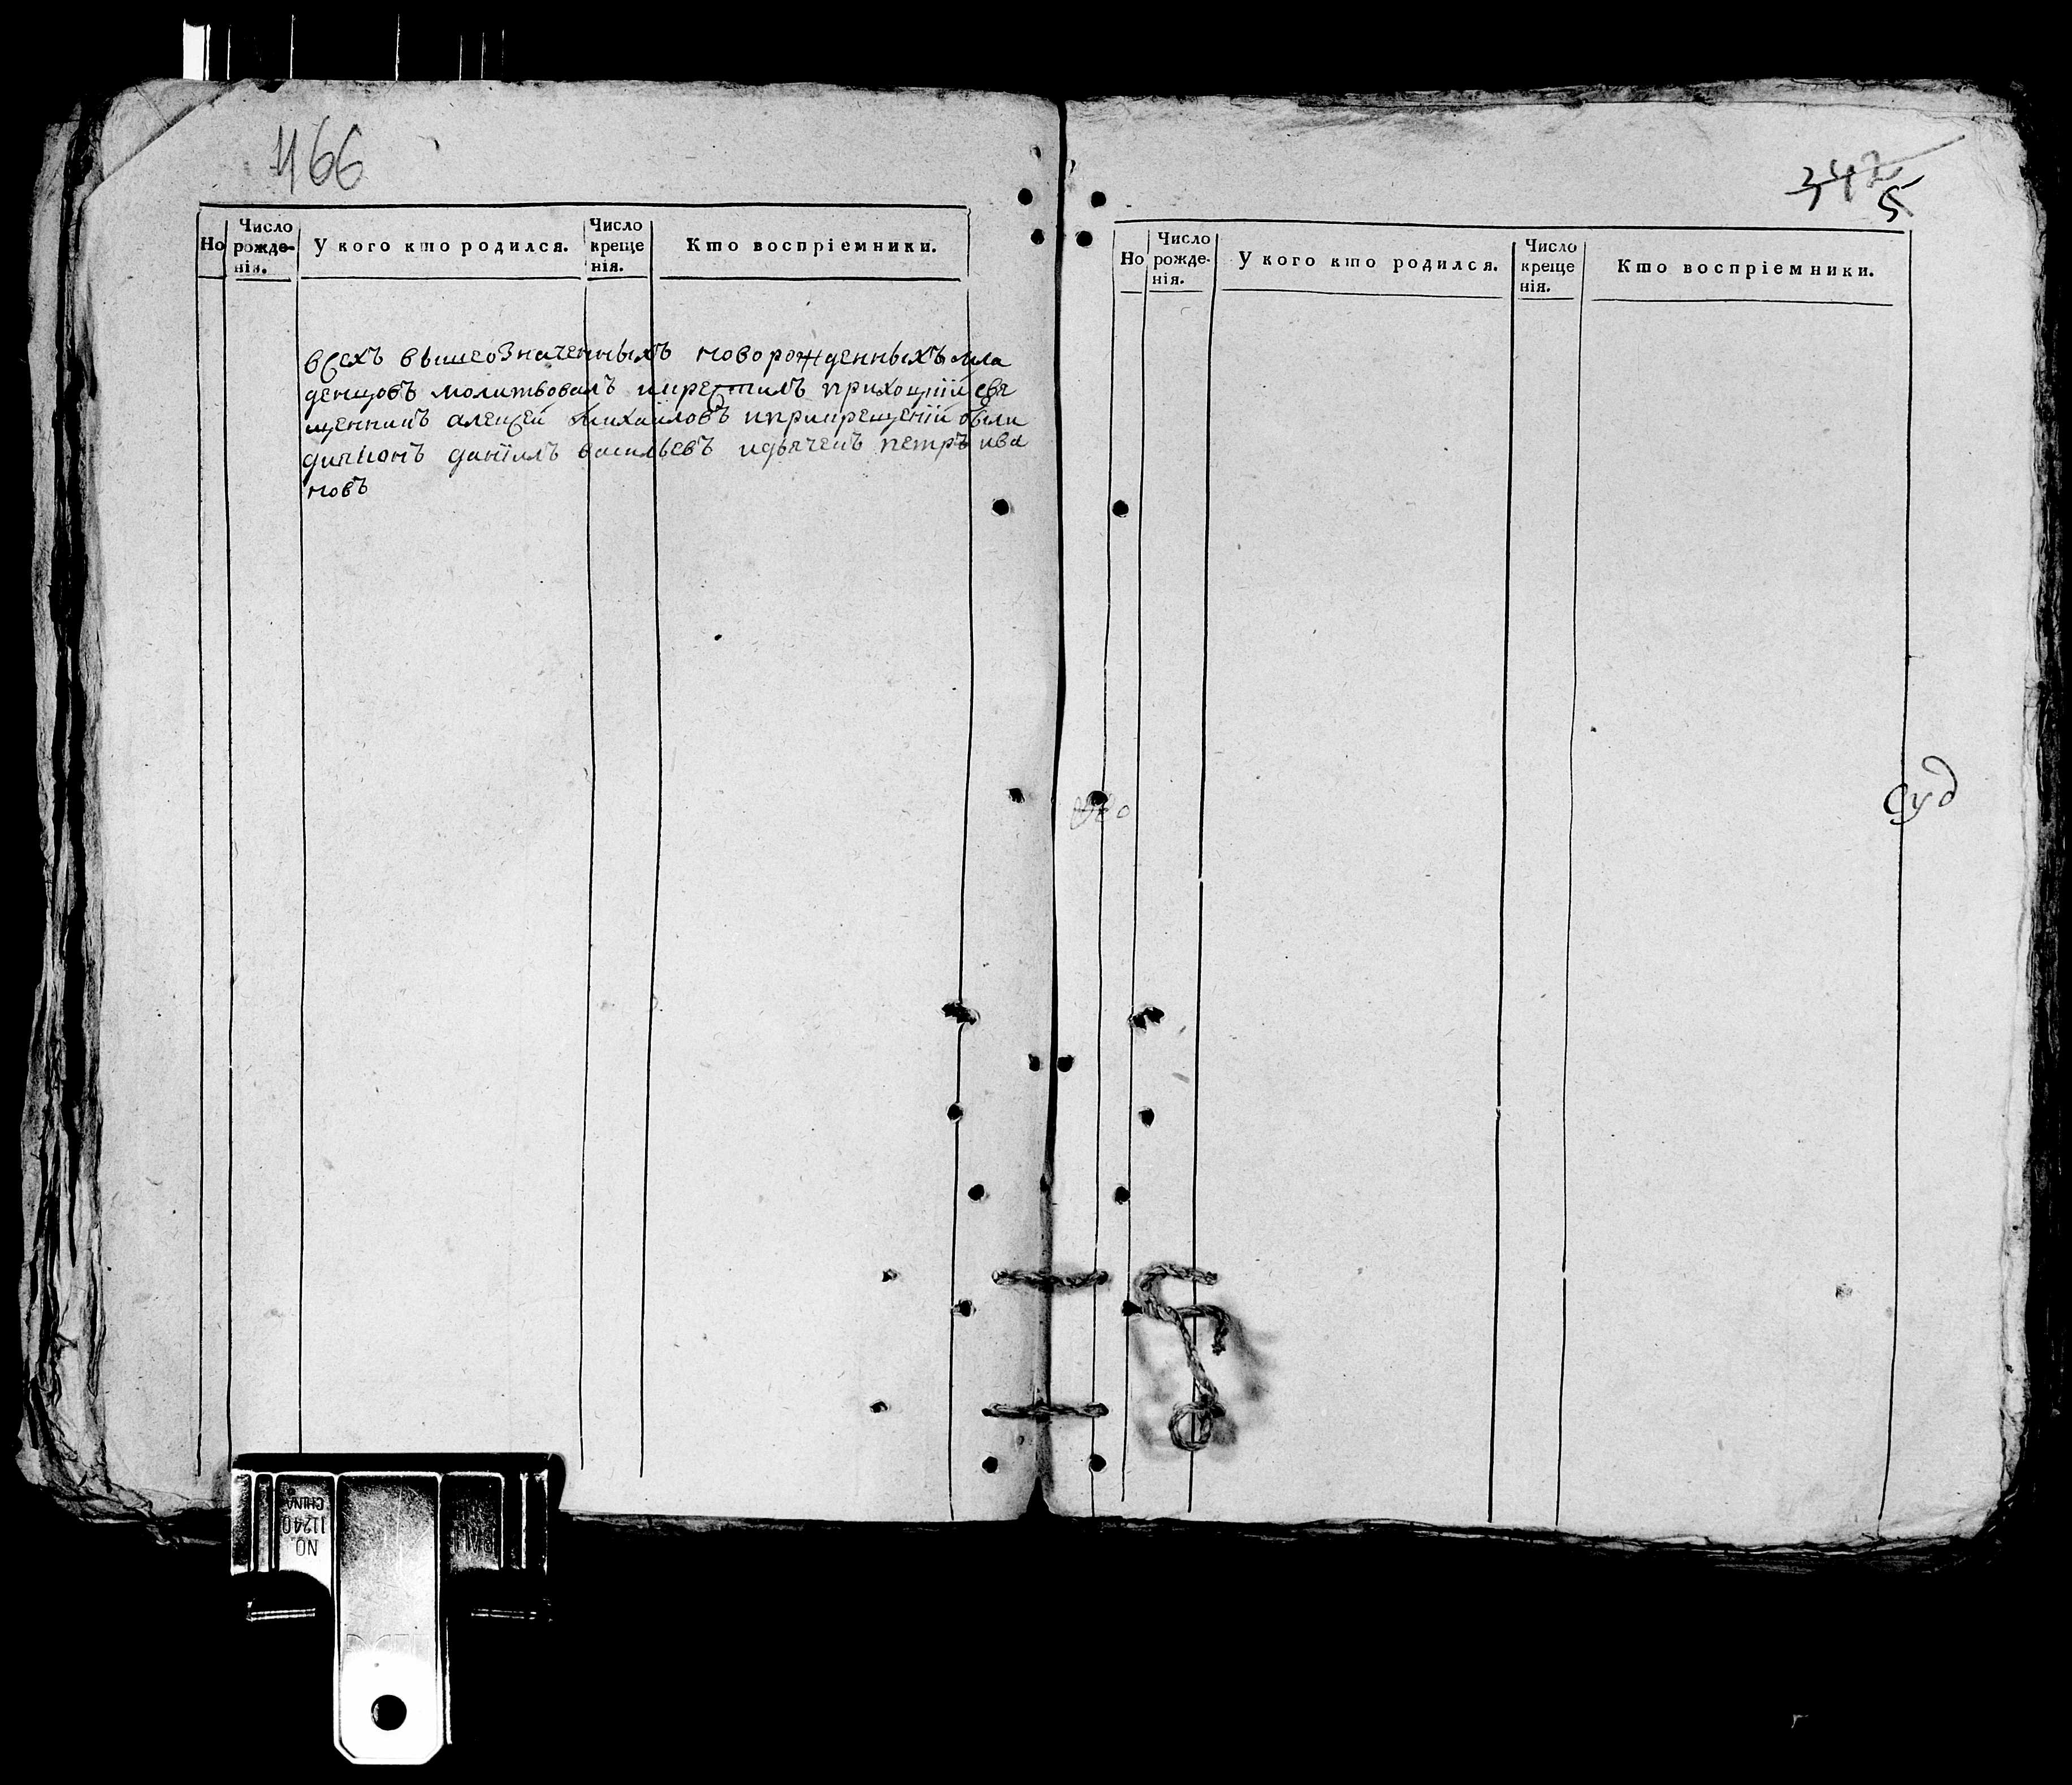 466
Но
Число рожде-нія.
У кого кто родился.
Число креще нія.
Кто воспріемники.
всехъ вышеозначенныхъ новорожденныхъ мла
денцовъ молитвовалъ икрестилъ приходскій свя
щенникъ алексей михайловъ иприкрещеніи были
диаконъ даніилъ васильевъ идьячекъ петръ ива
новъ
342
5
Но
Число рожде-нія.
У кого кто родился.
Число креще нія.
Кто воспріемники.
Суд
NO.
11240
CHINA